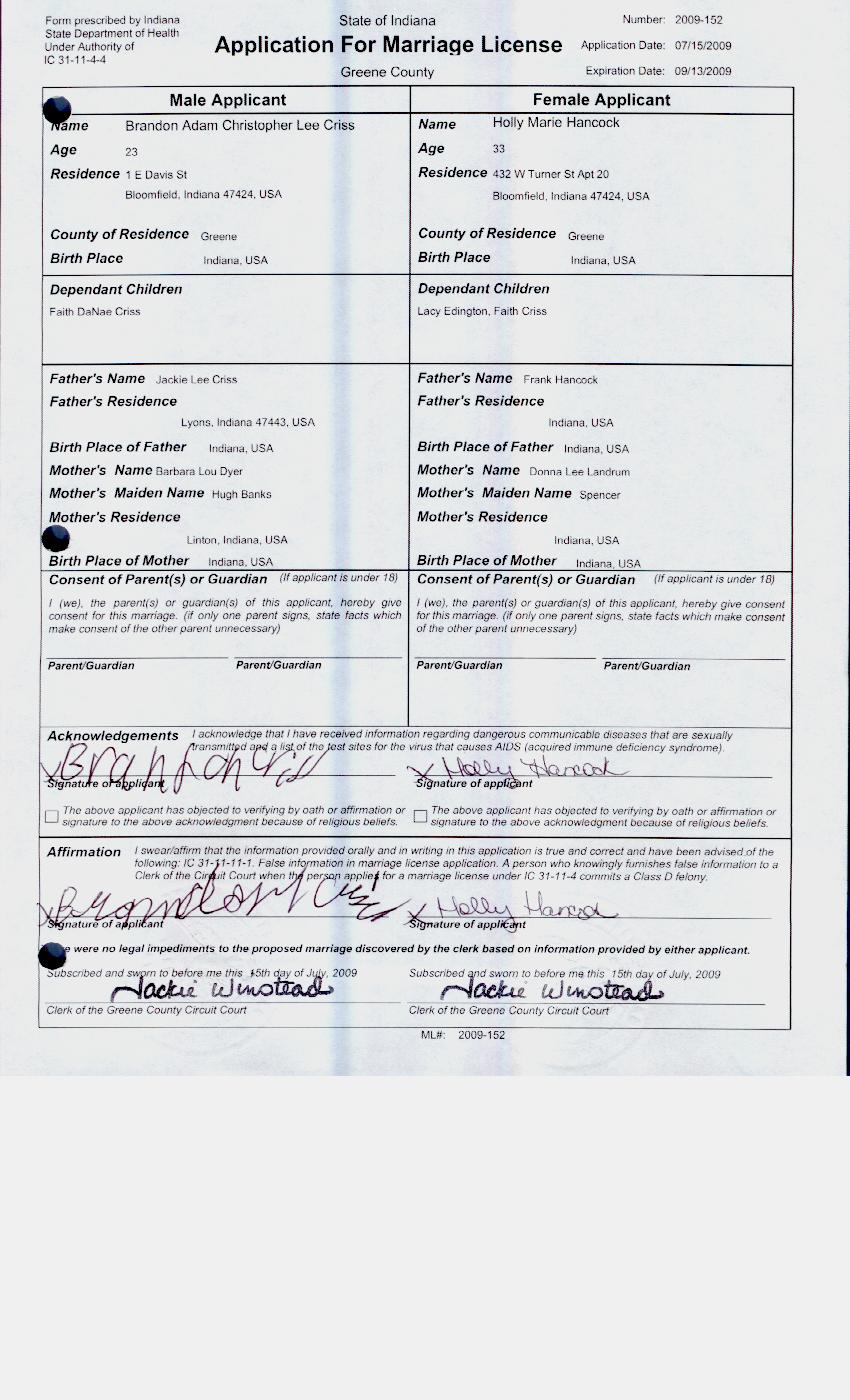 Form prescribed by Indiana
State Department of Health
Under Authority of
IC 31-11-4-4
State of Indiana
Application For Marriage License
Greene County
Number: 2009-152
Application Date: 07/15/2009
Expiration Date: 09/13/2009
Male Applicant
Name Brandon Adam Christopher Lee Criss
Age 23
Residence 1 E Davis St
Bloomfield, Indiana 47424, USA
County of Residence Greene
Birth Place Indiana, USA
Dependant Children
Faith DaNae Criss
Father's Name Jackie Lee Criss
Father's Residence
Lyons, Indiana 47443, USA
Birth Place of Father Indiana, USA
Mother's Name Barbara Lou Dyer
Mother's Maiden Name Hugh Banks
Mother's Residence
Linton, Indiana, USA
Birth Place of Mother Indiana, USA
Consent of Parent(s) or Guardian (If applicant is under 18)
I (we), the parent(s) or guardian(s) of this applicant, hereby give
consent for this marriage. (if only one parent signs, state facts which
make consent of the other parent unnecessary)
Parent/Guardian Parent/Guardian
Female Applicant
Name Holly Marie Hancock
Age 33
Residence 432 W Turner St Apt 20
Bloomfield, Indiana 47424, USA
County of Residence Greene
Birth Place Indiana, USA
Dependant Children
Lacy Edington, Faith Criss
Father's Name Frank Hancock
Father's Residence
Indiana, USA
Birth Place of Father Indiana, USA
Mother's Name Donna Lee Landrum
Mother's Maiden Name Spencer
Mother's Residence
Indiana, USA
Birth Place of Mother Indiana, USA
Consent of Parent(s) or Guardian (If applicant is under 18)
I (we), the parent(s) or guardian(s) of this applicant, hereby give consent
for this marriage. (if only one parent signs, state facts which make consent
of the other parent unnecessary)
Parent/Guardian Parent/Guardian
Acknowledgements I acknowledge that I have received information regarding dangerous communicable diseases that are sexually
transmitted and a list of the test sites for the virus that causes AIDS (acquired immune deficiency syndrome).
x Brandon Criss x Holly Hancock
Signature of applicant Signature of applicant
The above applicant has objected to verifying by oath or affirmation or
signature to the above acknowledgment because of religious beliefs.
The above applicant has objected to verifying by oath or affirmation or
signature to the above acknowledgment because of religious beliefs.
Affirmation I swear/affirm that the information provided orally and in writing in this application is true and correct and have been advised of the
following: IC 31-11-11-1. False information in marriage license application. A person who knowingly furnishes false information to a
Clerk of the Circuit Court when the person applies for a marriage license under IC 31-11-4 commits a Class D felony.
x Brandon Criss x Holly Hancock
Signature of applicant Signature of applicant
e were no legal impediments to the proposed marriage discovered by the clerk based on information provided by either applicant.
Subscribed and sworn to before me this 15th day of July, 2009 Subscribed and sworn to before me this 15th day of July, 2009
Jackie Winstead Jackie Winstead
Clerk of the Greene County Circuit Court Clerk of the Greene County Circuit Court
ML#: 2009-152